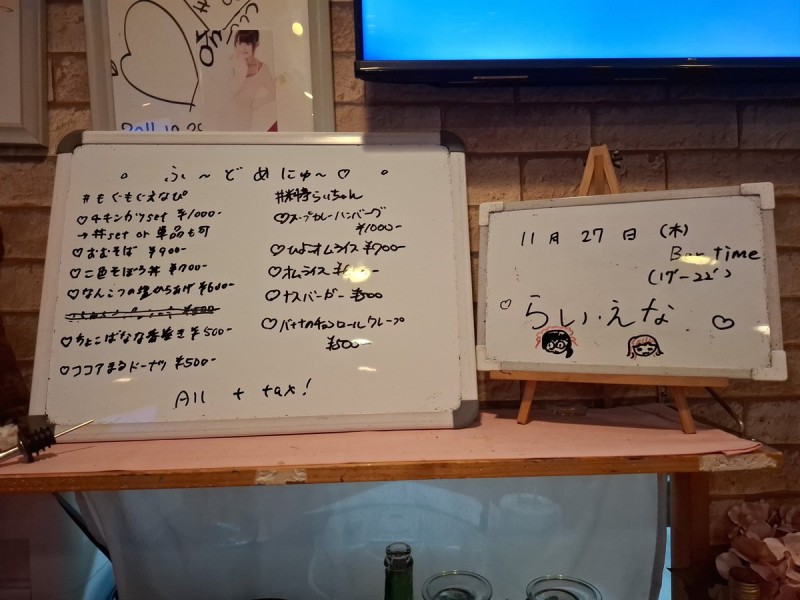 2011.10.25
ふ〜どめにゅ〜♡
#もぐもぐえなぴ
♡チキンカツset ¥1000-
→丼set or 単品も可
♡おむそば ¥900-
♡二色そぼろ丼 ¥700-
♡なんこつの塩からあげ ¥600-
♡ちょこばなな春巻き ¥500-
♡ココアまるドーナツ ¥500-
#料特らいちゃん
♡スープカレーハンバーグ
¥1000-
♡ひよこオムライス ¥700-
♡オムライス
♡ナスバーガー ¥500
♡バナナのチョコロールクレープ
¥500-
All + tax!
11月27日(木)
Bar time
(17-22)
♡らい・えな♡